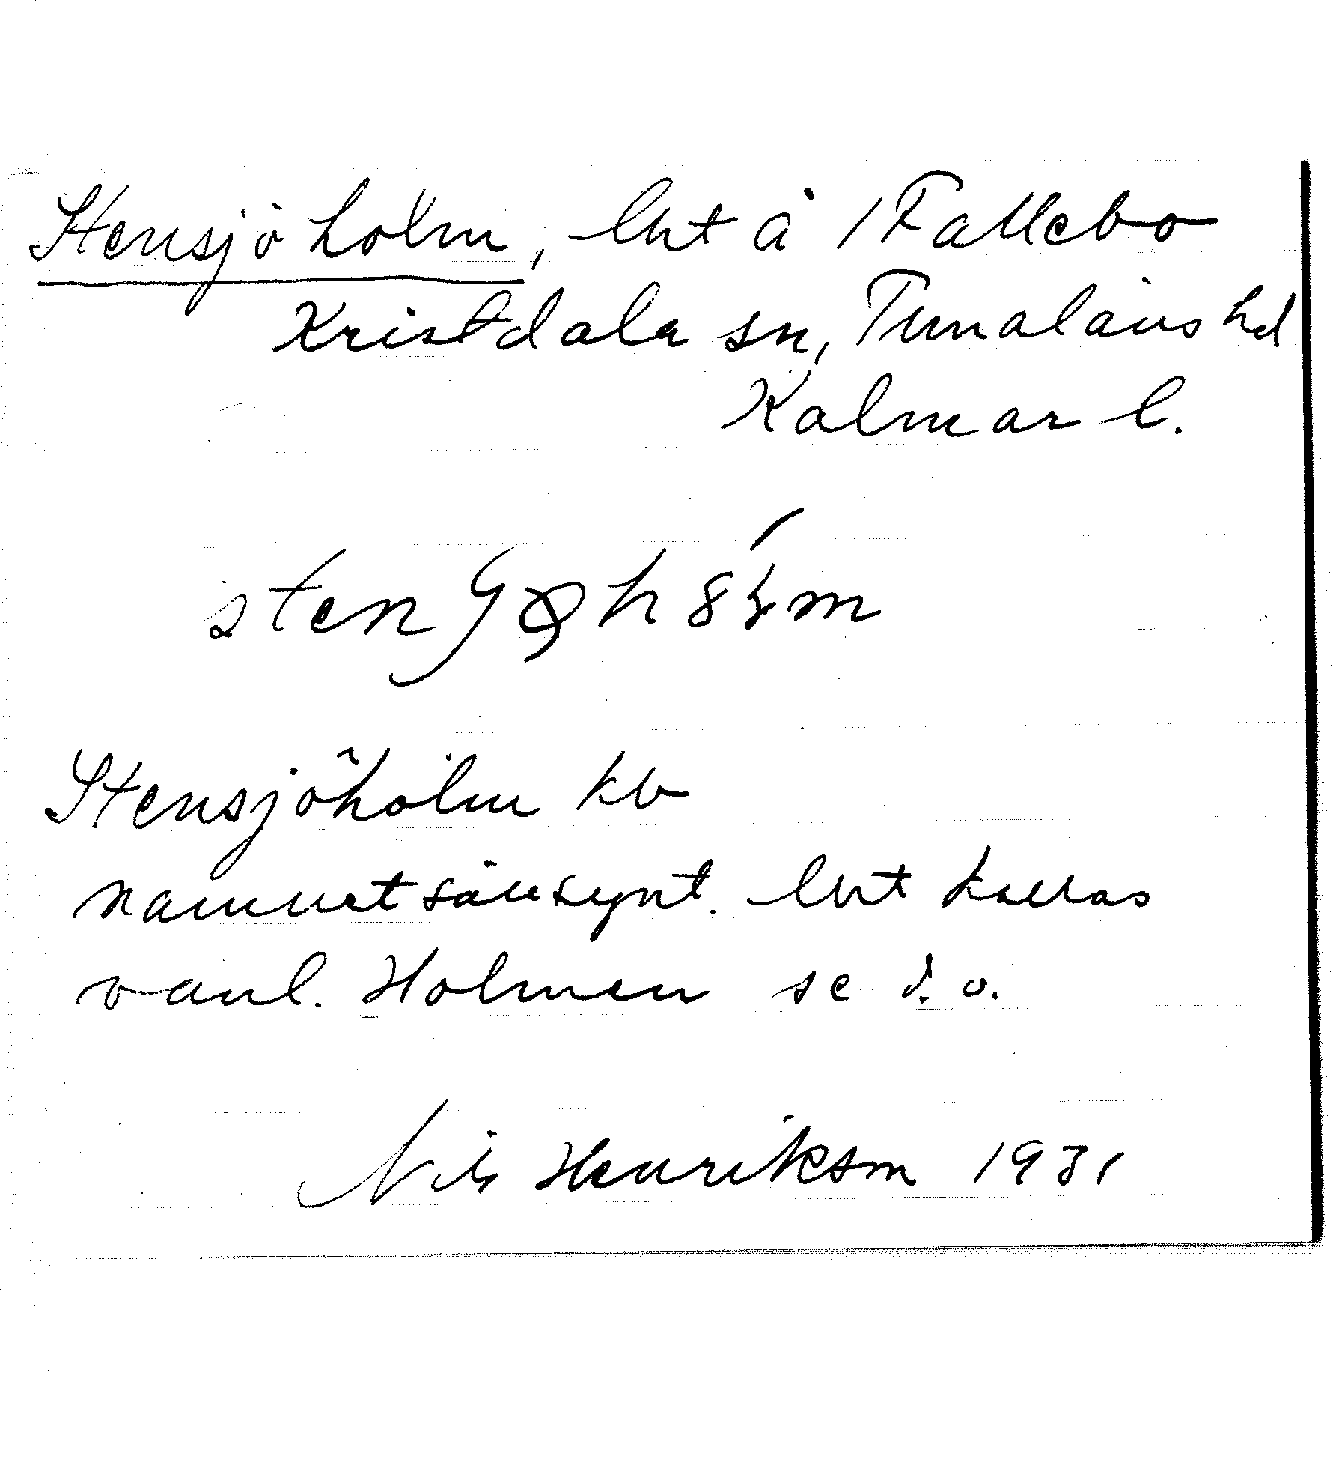 Stensjöholm, lht å 1 Fallebo
Kristdala sn, Tunaläns hd
Kalmar l.
Stensjöholm kb
namnet sällsynt. lht kallas
vanl. Holmen se d. o.
Nils Henriksson 1931